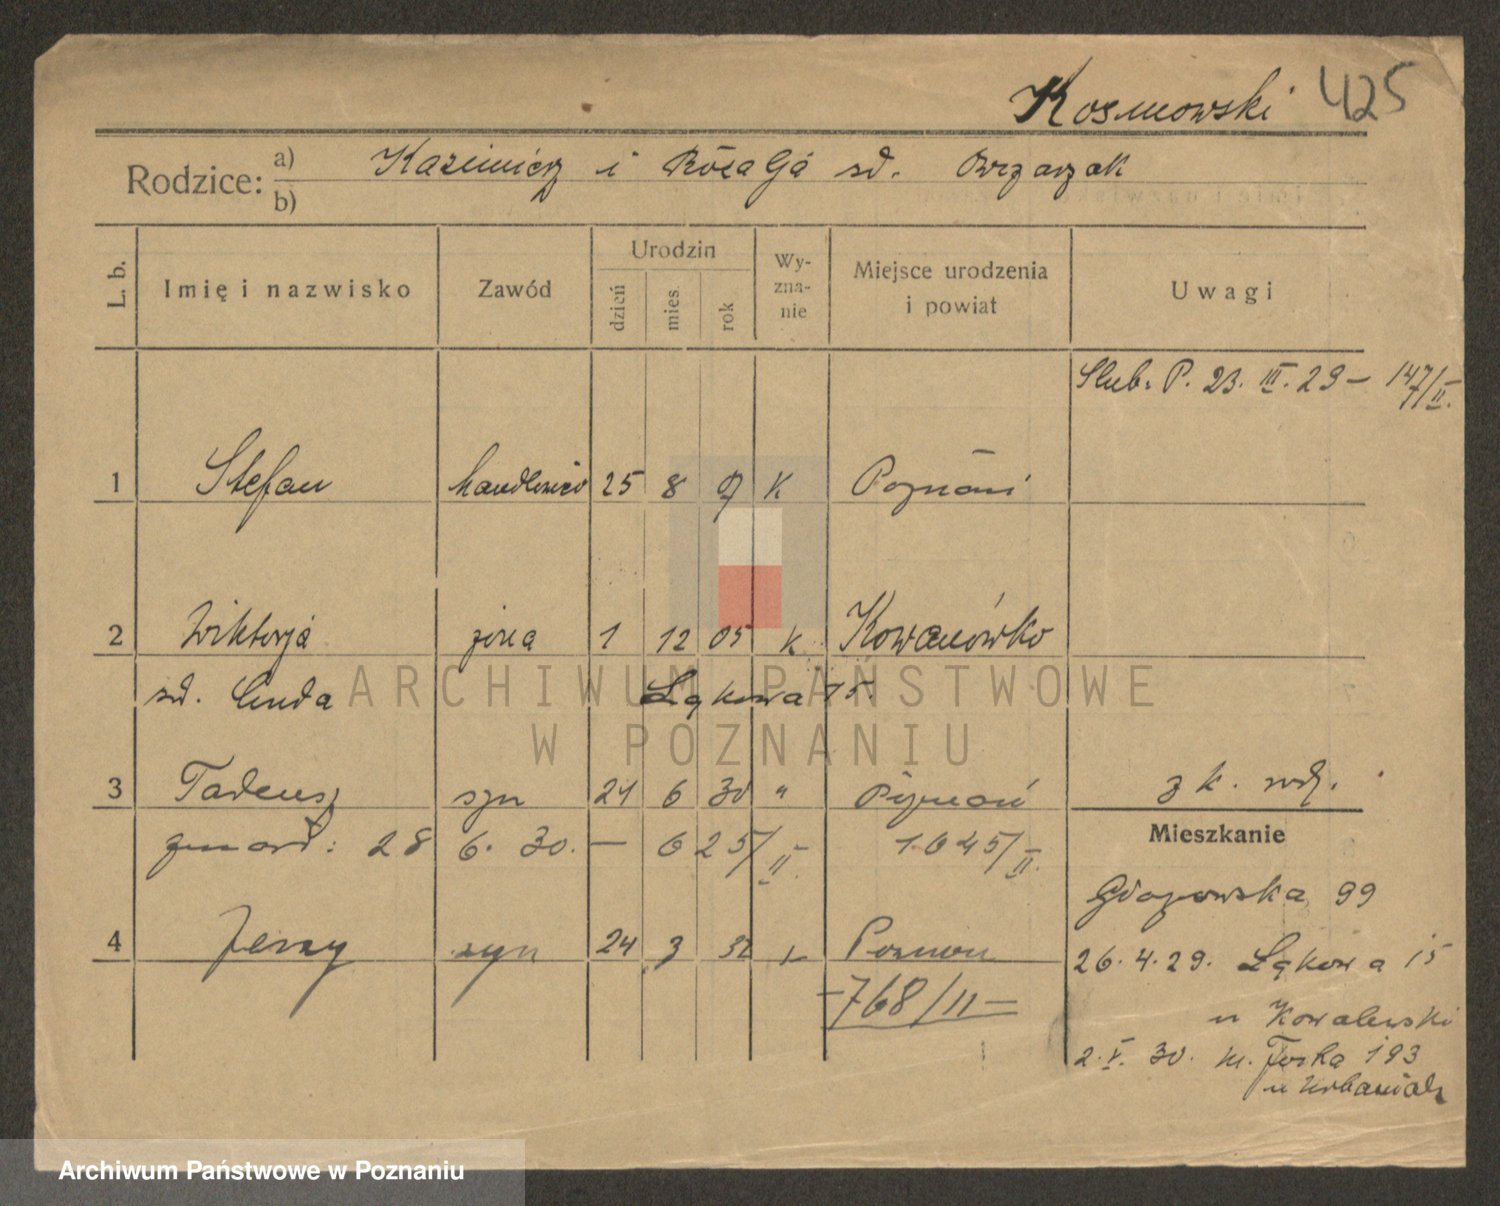 Kosmowski 425
Rodzice: a) Kazimierz i Rozalja zd.
b)
L. b. Imię i nazwisko Zawód Urodzin dzień mies. rok Wy-zna-nie Miejsce urodzenia i powiat Uwagi
Slub. P. 23. III. 29 – 147/II.
1 Stefan handlowiec 25 8 K Poznań
2 Wiktorja żona 1 12 05 K Kowanówko
zd. Łąkowa 15.
3 Tadeusz syn 21 6 30 " Poznań
z k. wdz.
zmarł: 28 6. 30. – 625/II 1645/II.
Mieszkanie
Głogowska 99
4 Jerzy syn 24 3 32 Poznań
768/II
26.4.29. Łąkowa 15
u Kowalewski
2.V.30. m. Focha 193
u Urbaniak
ARCHIWUM PAŃSTWOWE
W POZNANIU
Archiwum Państwowe w Poznaniu